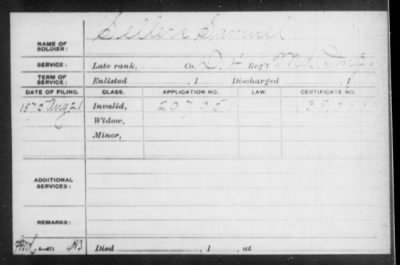 Sellers Samuel
NAME OF SOLDIER:
SERVICE: Late rank, Co. D. 4 Reg't Md. Inf.
TERM OF SERVICE: Enlisted , 1 Discharged , 1
DATE OF FILING. CLASS. APPLICATION NO. LAW. CERTIFICATE NO.
1875 Aug 21 Invalid,
Widow,
Minor,
ADDITIONAL SERVICES:
REMARKS:
Died , 1 , at